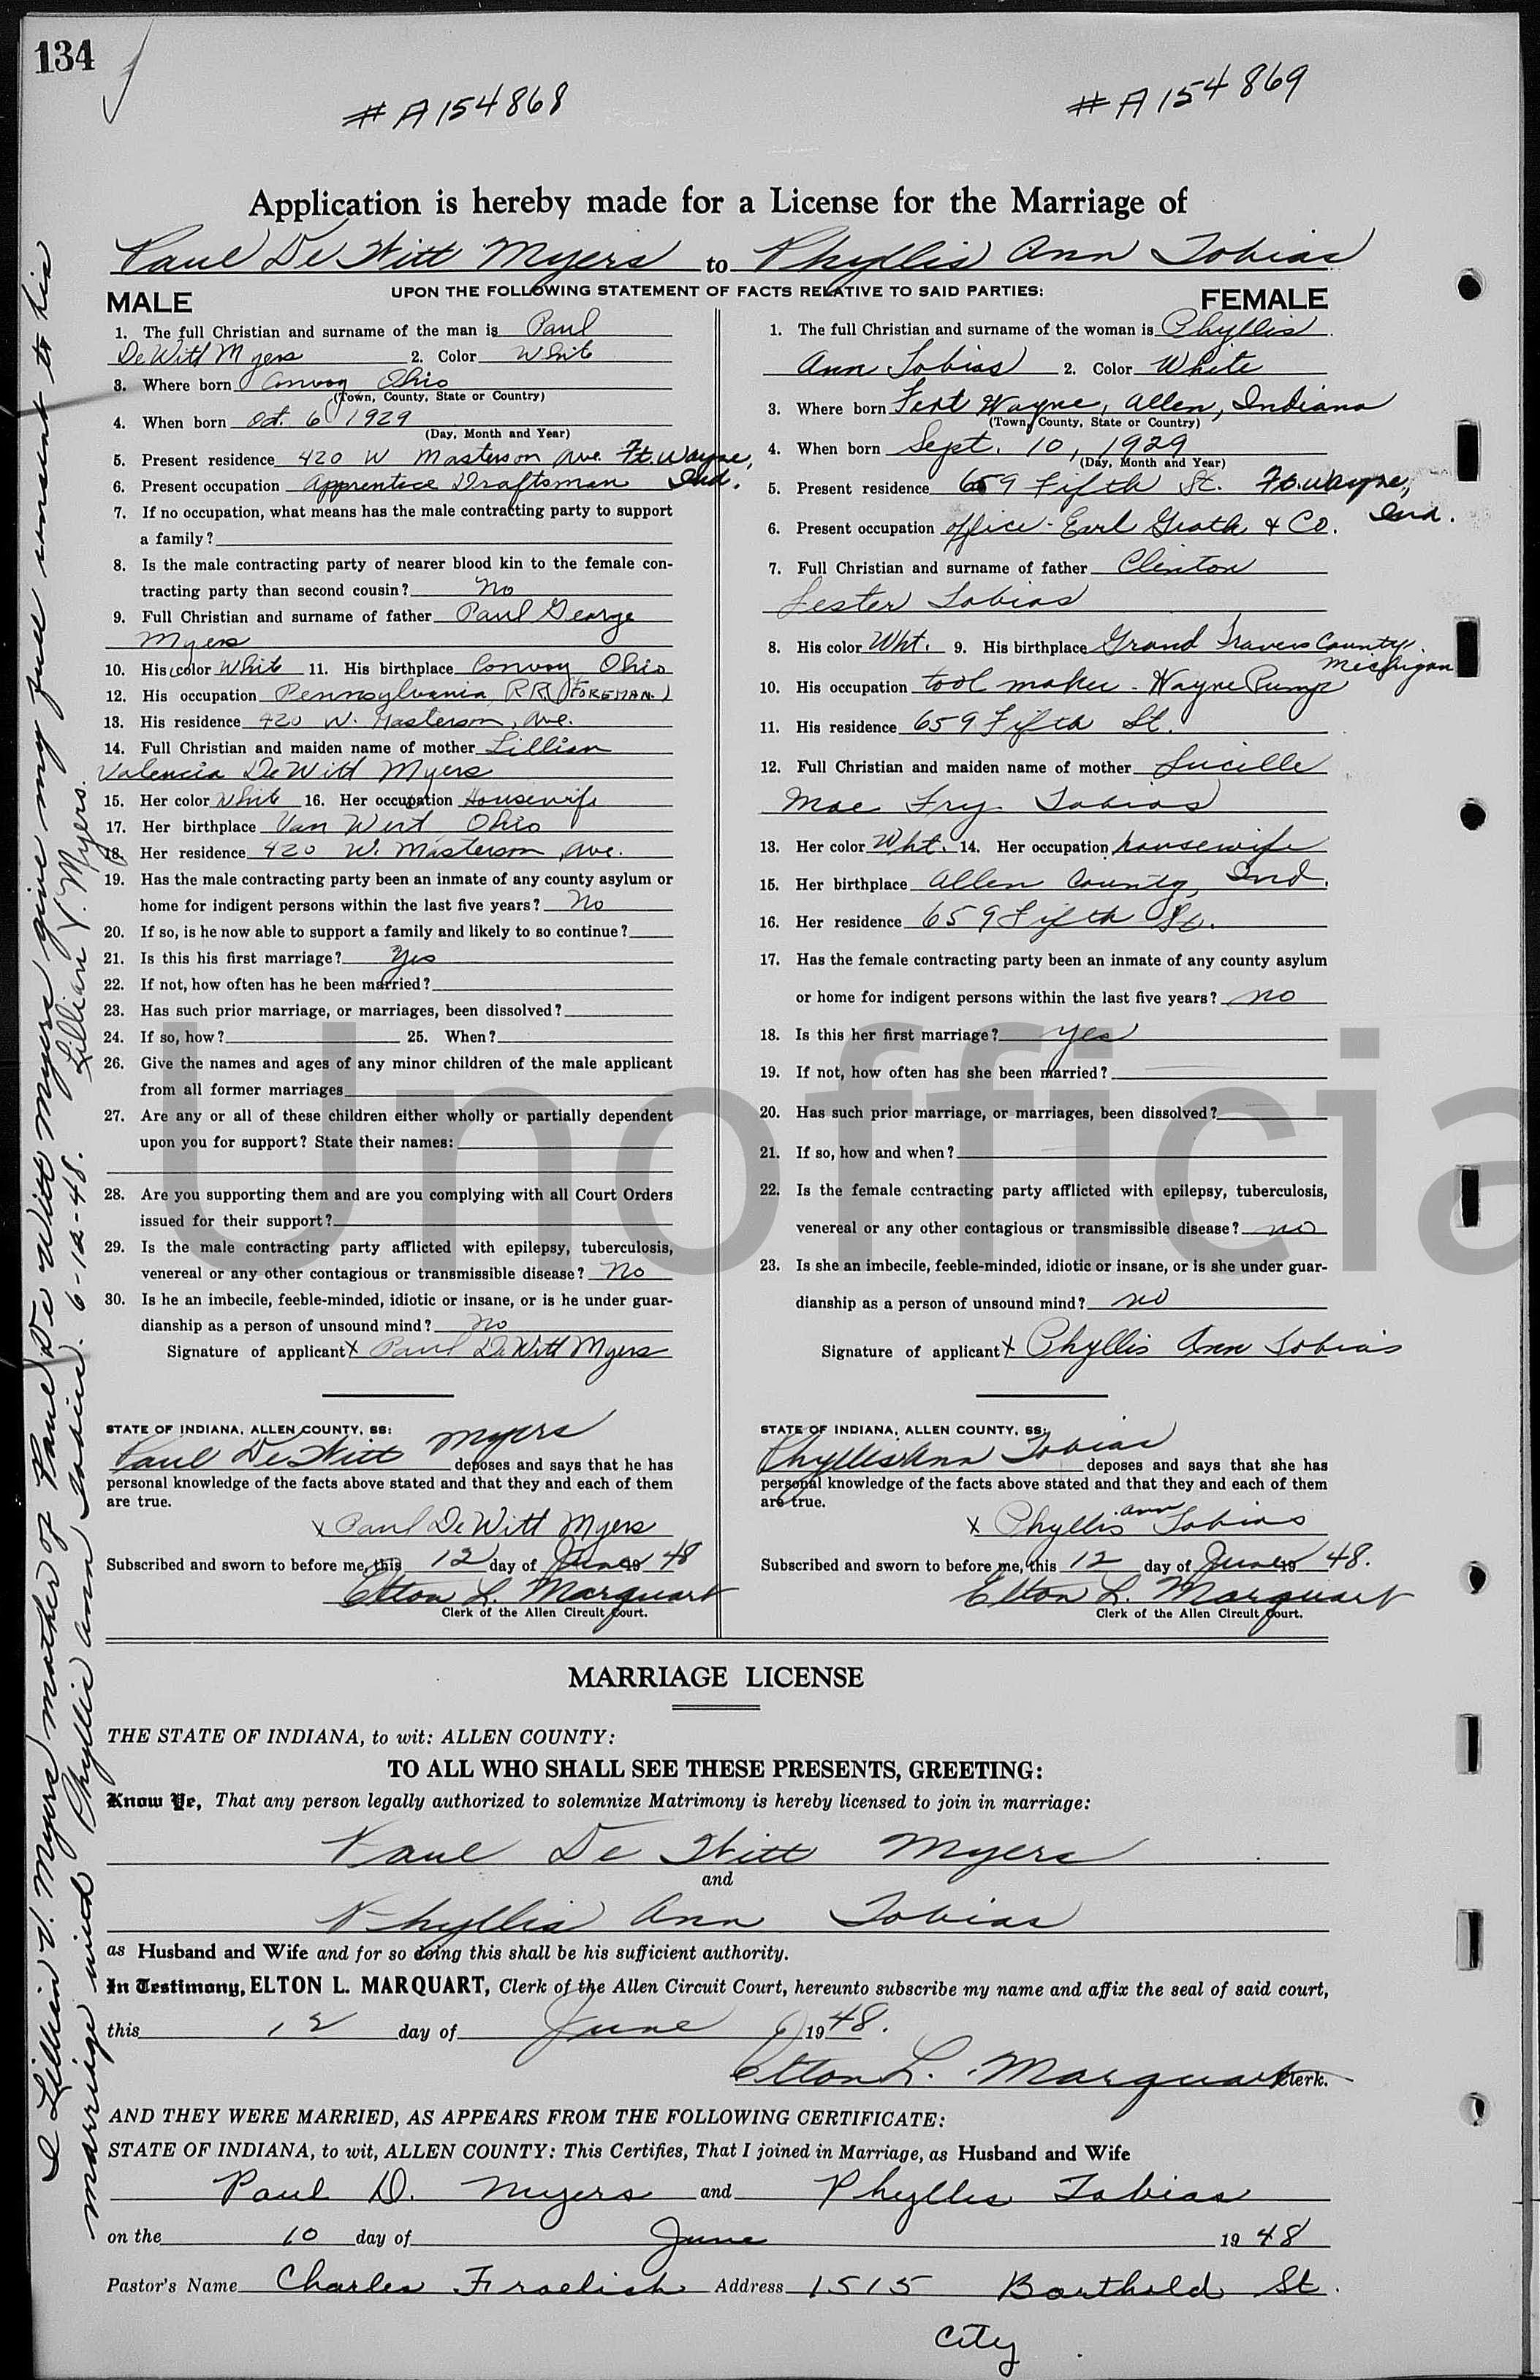 134
#A154868
#A154869
Application is hereby made for a License for the Marriage of
Paul De Witt Myers to Phyllis Ann Tobias
UPON THE FOLLOWING STATEMENT OF FACTS RELATIVE TO SAID PARTIES:
MALE
1. The full Christian and surname of the man is Paul
DeWitt Myers 2. Color White
3. Where born Convoy Ohio
(Town, County, State or Country)
4. When born Oct. 6 1929
(Day, Month and Year)
5. Present residence 420 W Masterson Ave. Ft. Wayne,
6. Present occupation Apprentice Draftsman Ind.
7. If no occupation, what means has the male contracting party to support
a family?
8. Is the male contracting party of nearer blood kin to the female con-
tracting party than second cousin? No
9. Full Christian and surname of father Paul George
Myers
10. His color White 11. His birthplace Convoy Ohio
12. His occupation Pennsylvania RR (FOREMAN)
13. His residence 420 W. Masterson, Ave.
14. Full Christian and maiden name of mother Lillian
Valencia DeWitt Myers
15. Her color White 16. Her occupation Housewife
17. Her birthplace Van Wert, Ohio
18. Her residence 420 W. Masterson, Ave.
19. Has the male contracting party been an inmate of any county asylum or
home for indigent persons within the last five years? No
20. If so, is he now able to support a family and likely to so continue?
21. Is this his first marriage? Yes
22. If not, how often has he been married?
23. Has such prior marriage, or marriages, been dissolved?
24. If so, how? 25. When?
26. Give the names and ages of any minor children of the male applicant
from all former marriages
27. Are any or all of these children either wholly or partially dependent
upon you for support? State their names:
28. Are you supporting them and are you complying with all Court Orders
issued for their support?
29. Is the male contracting party afflicted with epilepsy, tuberculosis,
venereal or any other contagious or transmissible disease? No
30. Is he an imbecile, feeble-minded, idiotic or insane, or is he under guar-
dianship as a person of unsound mind? No
Signature of applicant X Paul DeWitt Myers
STATE OF INDIANA, ALLEN COUNTY, SS:
Paul DeWitt Myers deposes and says that he has
personal knowledge of the facts above stated and that they and each of them
are true.
X Paul DeWitt Myers
Subscribed and sworn to before me, this 12 day of June 19 48
Elton L. Marquart
Clerk of the Allen Circuit Court.
FEMALE
1. The full Christian and surname of the woman is Phyllis
Ann Tobias 2. Color White
3. Where born Fort Wayne, Allen, Indiana
(Town, County, State or Country)
4. When born Sept. 10, 1929
(Day, Month and Year)
5. Present residence 659 Fifth St. Ft. Wayne,
Ind.
6. Present occupation office - Earl Groth & Co.
7. Full Christian and surname of father Clinton
Lester Tobias
8. His color Wht. 9. His birthplace Grand Travers County,
Michigan
10. His occupation tool maker - Wayne Pump
11. His residence 659 Fifth St.
12. Full Christian and maiden name of mother Lucille
Mae Fry Tobias
13. Her color Wht. 14. Her occupation housewife
15. Her birthplace Allen County, Ind.
16. Her residence 659 Fifth St.
17. Has the female contracting party been an inmate of any county asylum
or home for indigent persons within the last five years? no
18. Is this her first marriage? yes
19. If not, how often has she been married?
20. Has such prior marriage, or marriages, been dissolved?
21. If so, how and when?
22. Is the female contracting party afflicted with epilepsy, tuberculosis,
venereal or any other contagious or transmissible disease? no
23. Is she an imbecile, feeble-minded, idiotic or insane, or is she under guar-
dianship as a person of unsound mind? no
Signature of applicant X Phyllis Ann Tobias
STATE OF INDIANA, ALLEN COUNTY, SS:
Phyllis Ann Tobias deposes and says that she has
personal knowledge of the facts above stated and that they and each of them
are true.
X Phyllis Ann Tobias
Subscribed and sworn to before me, this 12 day of June 19 48.
Elton L. Marquart
Clerk of the Allen Circuit Court.
MARRIAGE LICENSE
THE STATE OF INDIANA, to wit: ALLEN COUNTY:
TO ALL WHO SHALL SEE THESE PRESENTS, GREETING:
Know Ye, That any person legally authorized to solemnize Matrimony is hereby licensed to join in marriage:
Paul De Witt Myers
and
Phyllis Ann Tobias
as Husband and Wife and for so doing this shall be his sufficient authority.
In Testimony, ELTON L. MARQUART, Clerk of the Allen Circuit Court, hereunto subscribe my name and affix the seal of said court,
this 12 day of June 19 48.
Elton L. Marquart Clerk.
AND THEY WERE MARRIED, AS APPEARS FROM THE FOLLOWING CERTIFICATE:
STATE OF INDIANA, to wit, ALLEN COUNTY: This Certifies, That I joined in Marriage, as Husband and Wife
Paul D. Myers and Phyllis Tobias
on the 10 day of June 19 48
Pastor's Name Charles Froelich Address 1515 Barthold St.
City
I Lillian V. Myers mother of Paul De Witt Myers give my full consent to his
marriage with Phyllis Ann Tobias. 6-12-48. Lillian V. Myers.
Unofficia